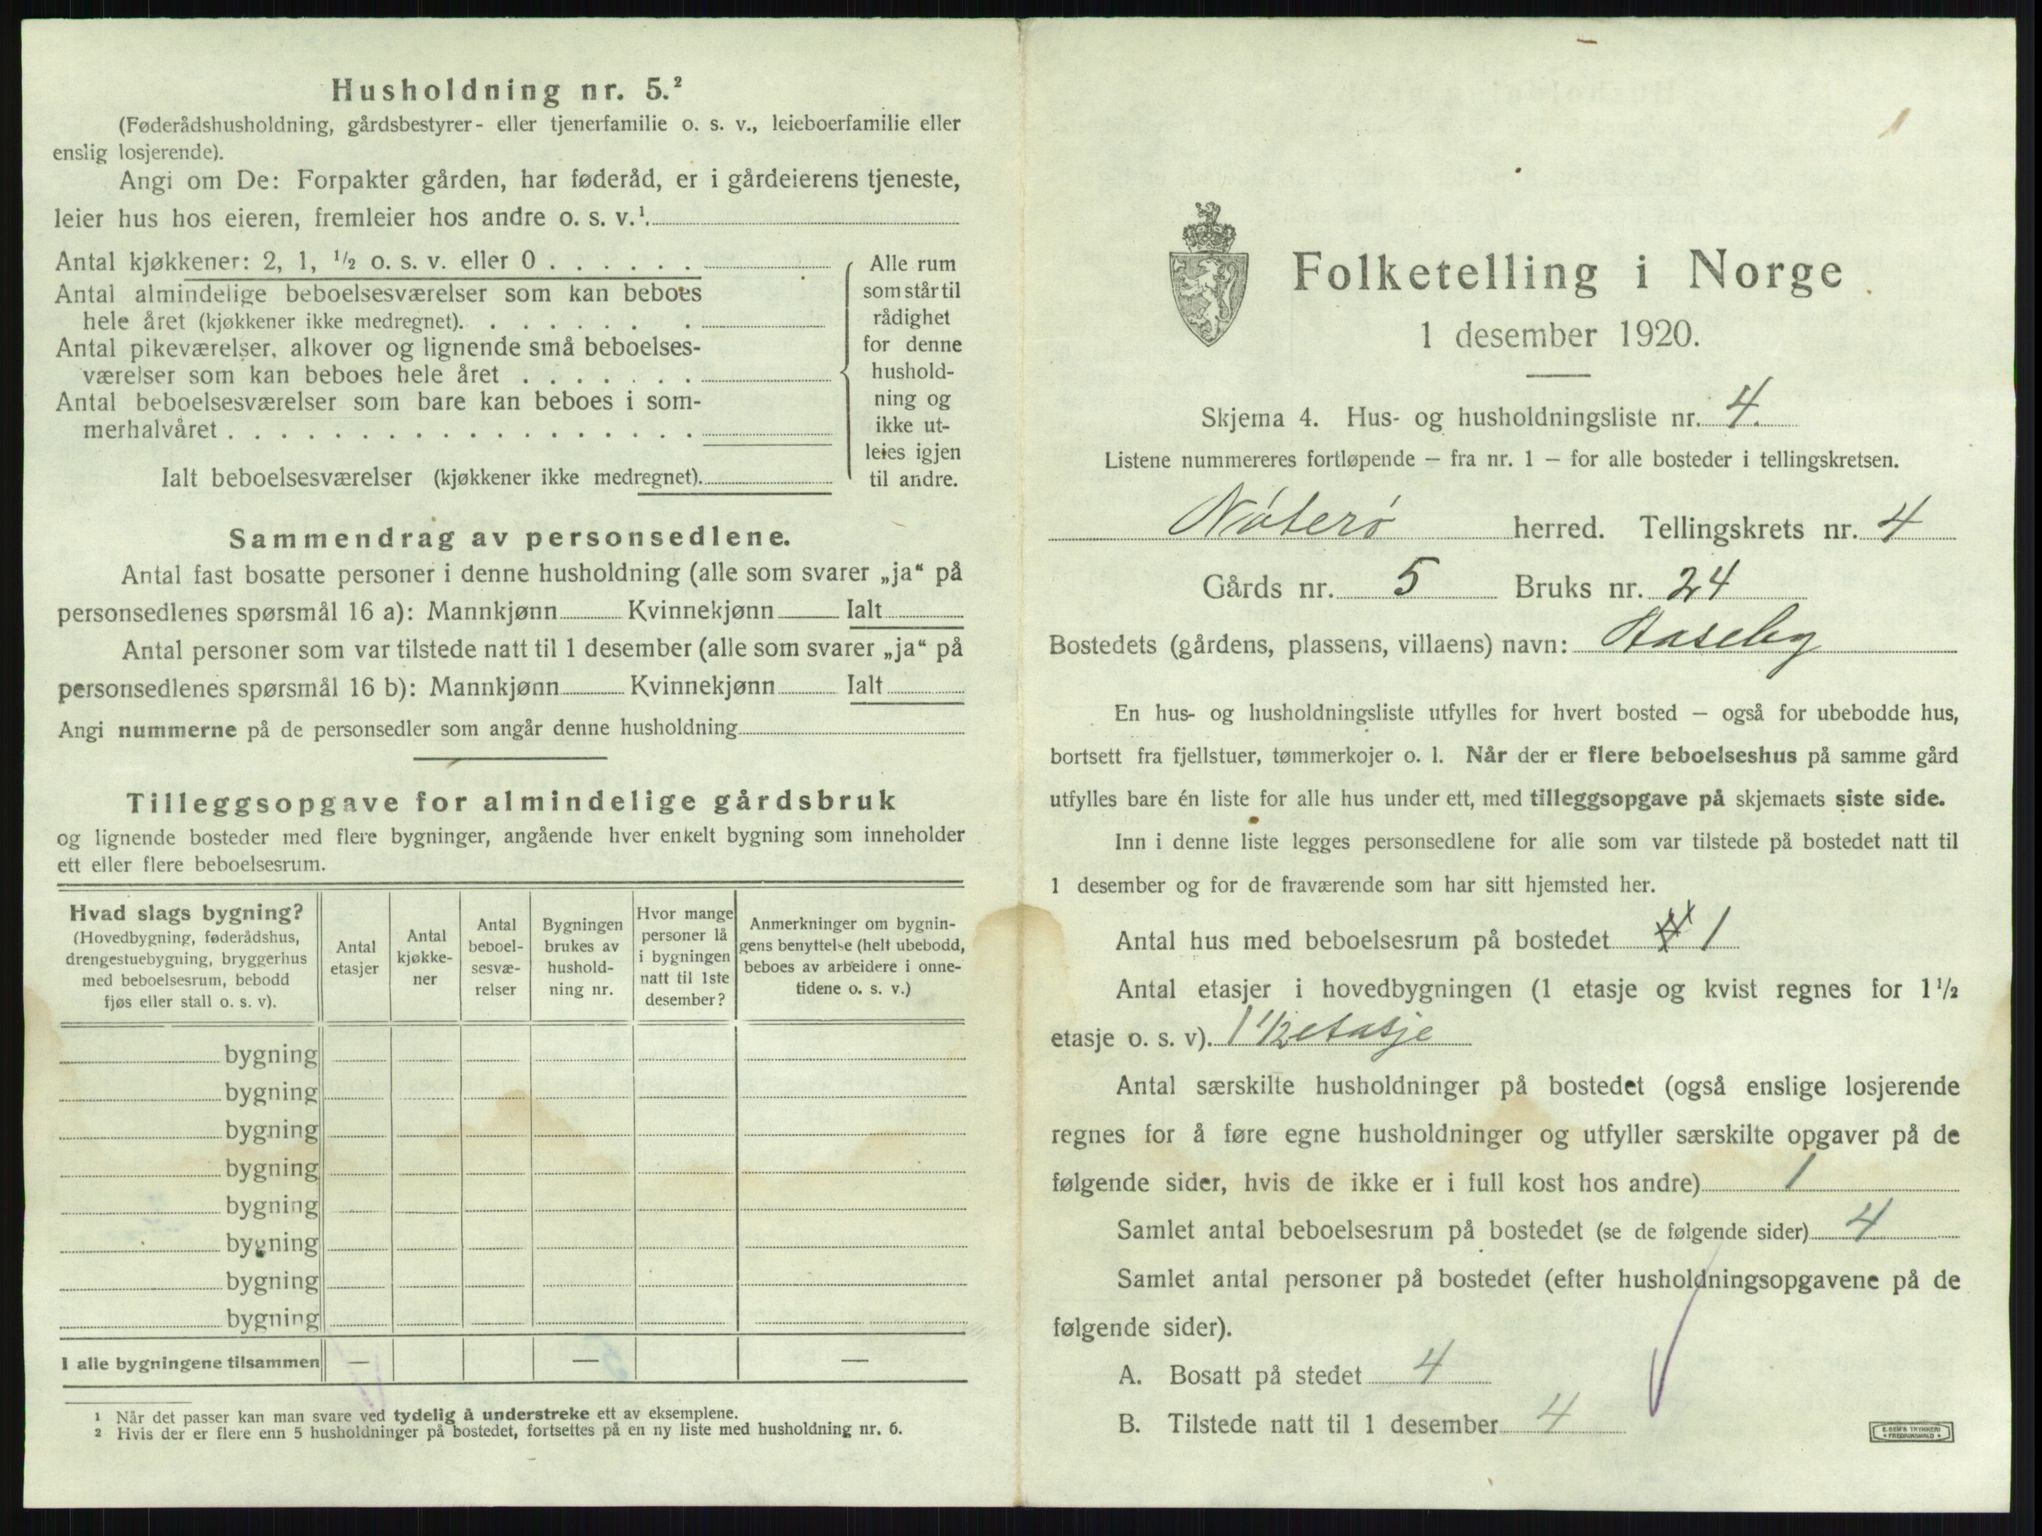 Husholdning nr. 5.²
(Føderådshusholdning, gårdsbestyrer- eller tjenerfamilie o. s. v., leieboerfamilie eller
enslig losjerende).
Angi om De: Forpakter gården, har føderåd, er i gårdeierens tjeneste,
leier hus hos eieren, fremleier hos andre o. s. v.¹
Antal kjøkkener: 2, 1, ½ o. s. v. eller 0 . . . . . .
Antal almindelige beboelsesværelser som kan beboes
hele året (kjøkkener ikke medregnet). . . . . . . . .
Antal pikeværelser, alkover og lignende små beboelses-
værelser som kan beboes hele året . . . . . . .
Antal beboelsesværelser som bare kan beboes i som-
merhalvåret . . . . . . . . . . . . . . . . . .
Ialt beboelsesværelser (kjøkkener ikke medregnet).
Alle rum
som står til
rådighet
for denne
hushold-
ning og
ikke ut-
leies igjen
til andre.
Sammendrag av personsedlene.
Antal fast bosatte personer i denne husholdning (alle som svarer „ja“ på
personsedlenes spørsmål 16 a): Mannkjønn Kvinnekjønn Ialt
Antal personer som var tilstede natt til 1 desember (alle som svarer „ja“ på
personsedlenes spørsmål 16 b): Mannkjønn Kvinnekjønn Ialt
Angi nummerne på de personsedler som angår denne husholdning
Tilleggsopgave for almindelige gårdsbruk
og lignende bosteder med flere bygninger, angående hver enkelt bygning som inneholder
ett eller flere beboelsesrum.
Hvad slags bygning?
(Hovedbygning, føderådshus,
drengestuebygning, bryggerhus
med beboelsesrum, bebodd
fjøs eller stall o. s. v).
Antal
etasjer
Antal
kjøkke-
ner
Antal
beboel-
sesvæ-
relser
Bygningen
brukes av
hushold-
ning nr.
Hvor mange
personer lå
i bygningen
natt til 1ste
desember?
Anmerkninger om bygnin-
gens benyttelse (helt ubebodd,
beboes av arbeidere i onne-
tidene o. s. v.)
bygning
bygning
bygning
bygning
bygning
bygning
bygning
bygning
I alle bygningene tilsammen — — —
1 Når det passer kan man svare ved tydelig å understreke ett av eksemplene.
2 Hvis der er flere enn 5 husholdninger på bostedet, fortsettes på en ny liste med husholdning nr. 6.
1
Folketelling i Norge
1 desember 1920.
Skjema 4. Hus- og husholdningsliste nr. 4.
Listene nummereres fortløpende – fra nr. 1 – for alle bosteder i tellingskretsen.
Nøterø herred. Tellingskrets nr. 4
Gårds nr. 5 Bruks nr. 24
Bostedets (gårdens, plassens, villaens) navn: Aaseby
En hus- og husholdningsliste utfylles for hvert bosted – også for ubebodde hus,
bortsett fra fjellstuer, tømmerkojer o. l. Når der er flere beboelseshus på samme gård
utfylles bare én liste for alle hus under ett, med tilleggsopgave på skjemaets siste side.
Inn i denne liste legges personsedlene for alle som var tilstede på bostedet natt til
1 desember og for de fraværende som har sitt hjemsted her.
Antal hus med beboelsesrum på bostedet 1
Antal etasjer i hovedbygningen (1 etasje og kvist regnes for 1½
etasje o. s. v). 1 1/2 etasje
Antal særskilte husholdninger på bostedet (også enslige losjerende
regnes for å føre egne husholdninger og utfyller særskilte opgaver på de
følgende sider, hvis de ikke er i full kost hos andre) 1
Samlet antal beboelsesrum på bostedet (se de følgende sider) 4
Samlet antal personer på bostedet (efter husholdningsopgavene på de
følgende sider).
A. Bosatt på stedet 4
B. Tilstede natt til 1 desember 4
E. SEM'S TRYKKERI
FREDRIKSHALD